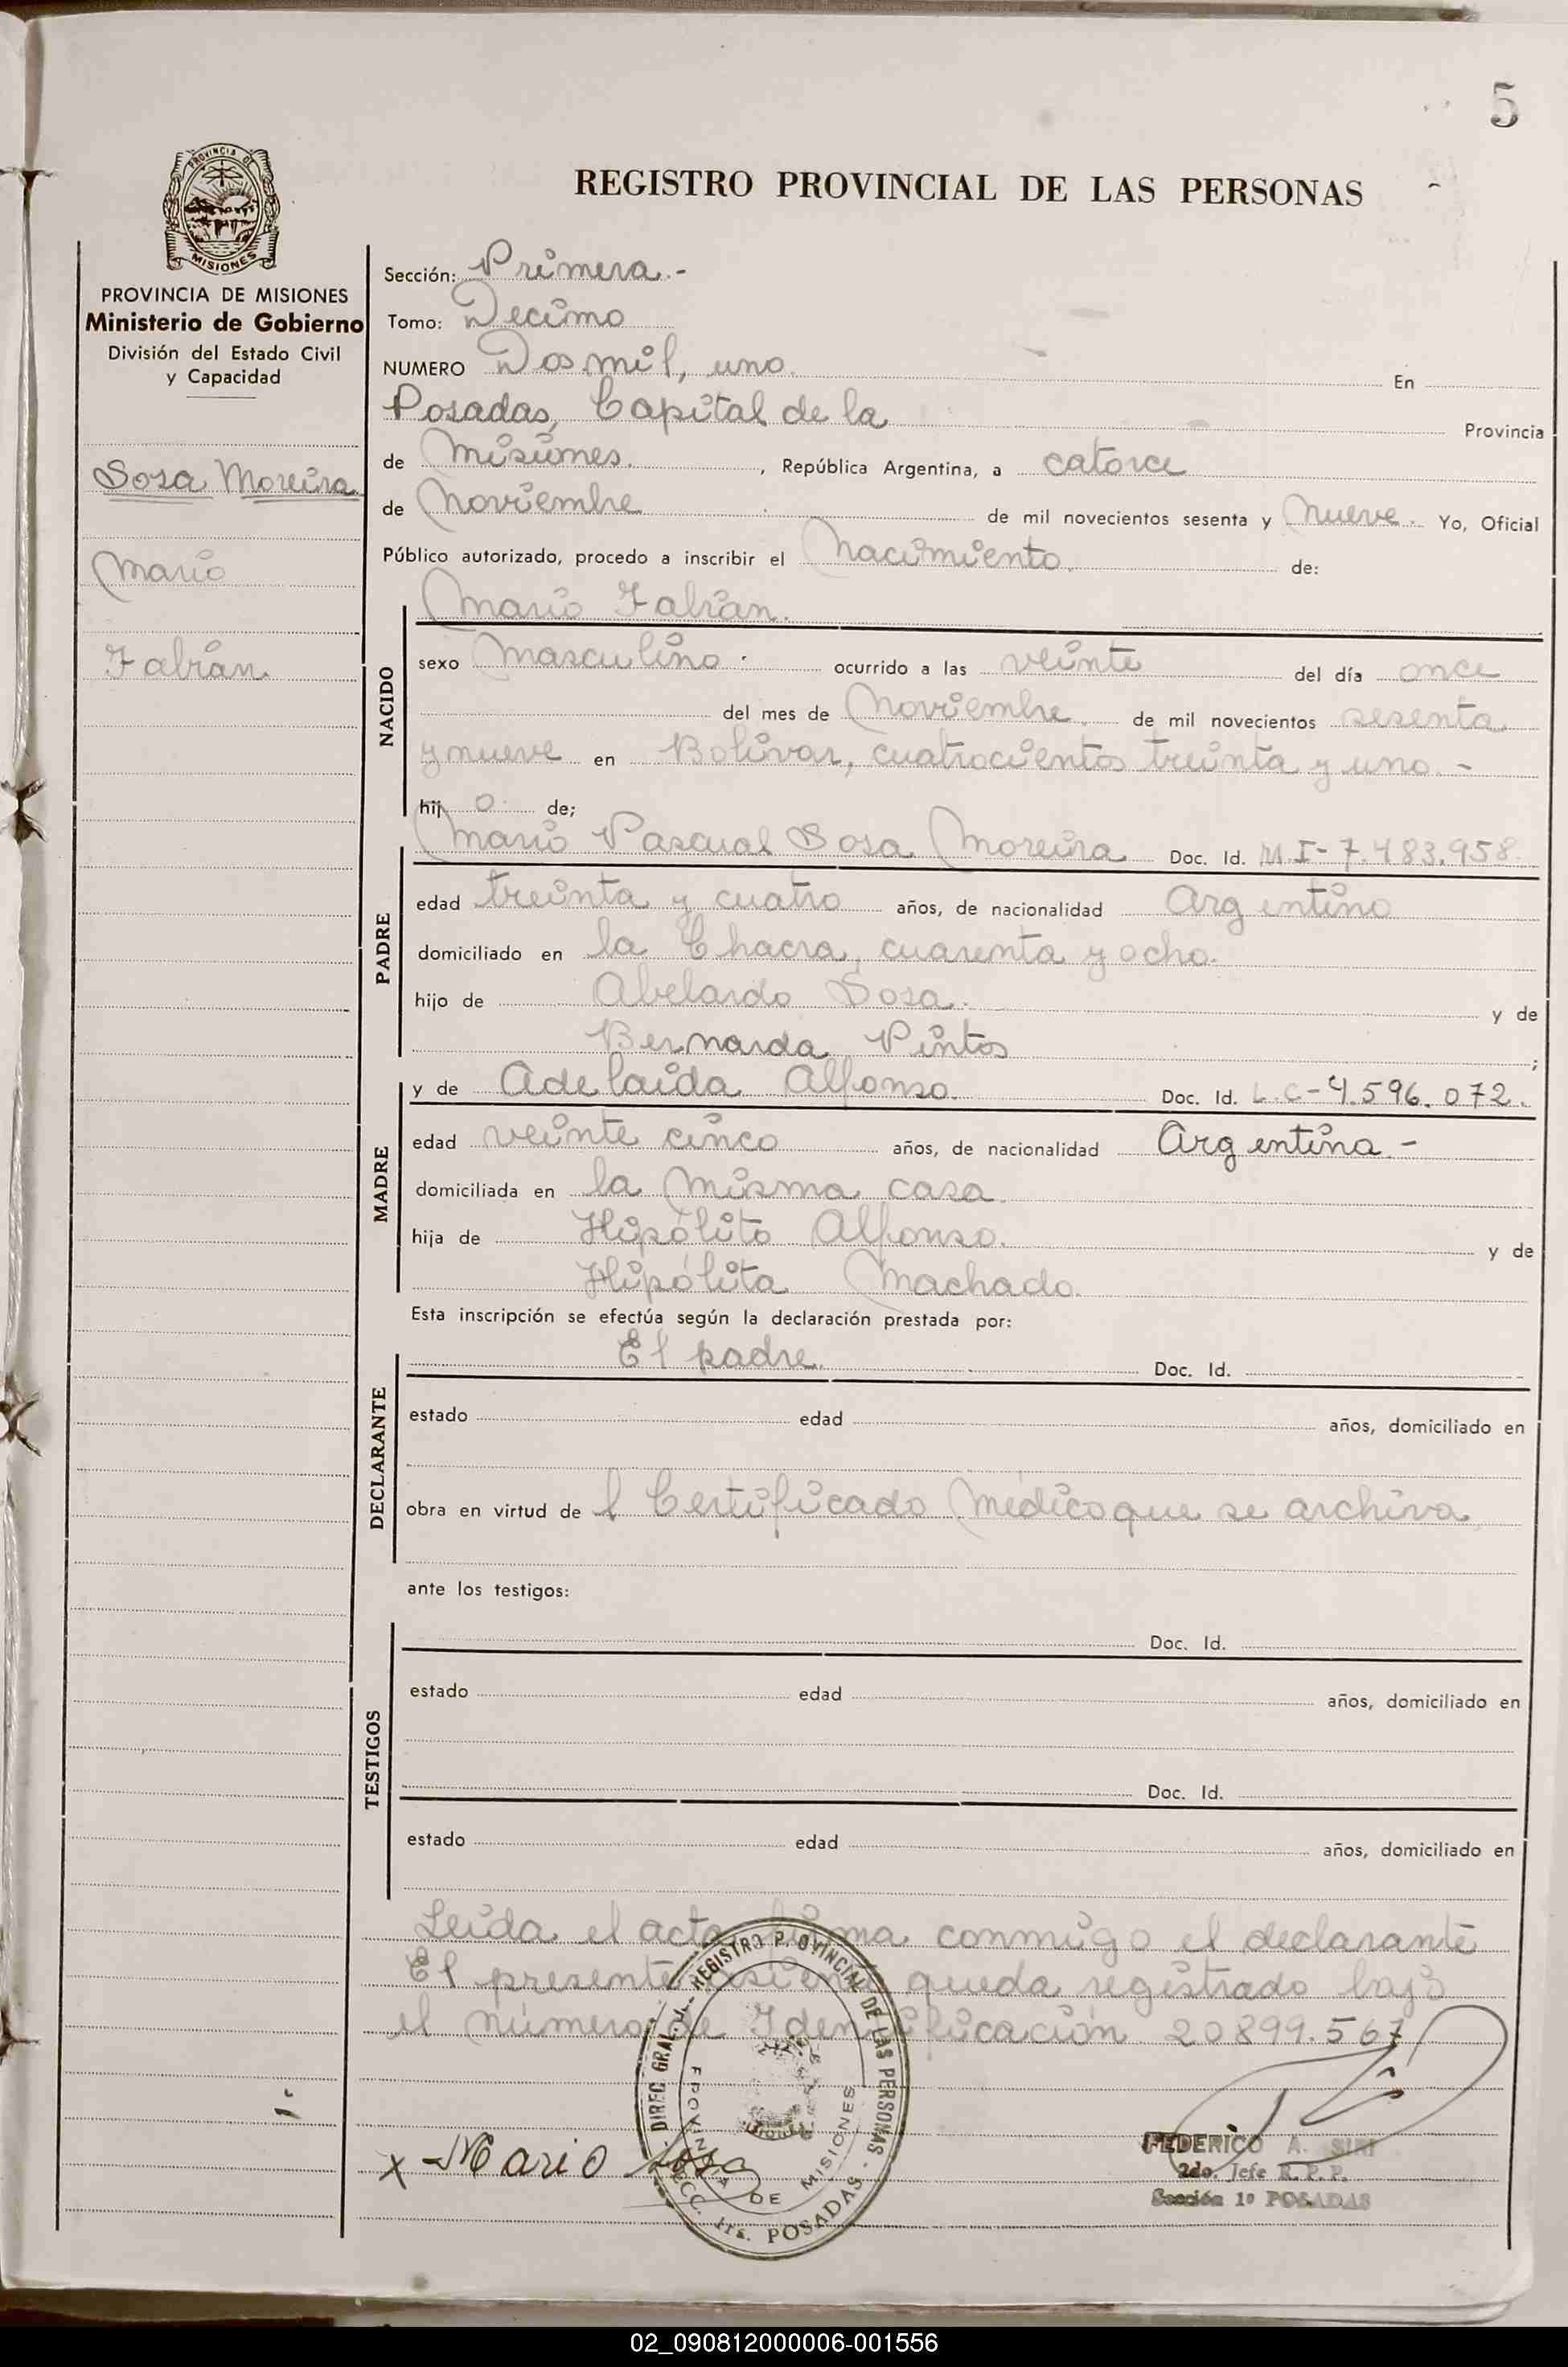 5
REGISTRO PROVINCIAL DE LAS PERSONAS
PROVINCIA DE
MISIONES
PROVINCIA DE MISIONES
Ministerio de Gobierno
División del Estado Civil
y Capacidad
Sosa Moreira
Mario
Fabián.
Sección: Primera.-
Tomo: Decimo
NUMERO Dos mil, uno. En
Posadas, Capital de la Provincia
de Misiones. , República Argentina, a catorce
de Noviembre de mil novecientos sesenta y Nueve. Yo, Oficial
Público autorizado, procedo a inscribir el Nacimiento. de:
NACIDO
Mario Fabián.
sexo Masculino. ocurrido a las veinte del día once
del mes de Noviembre de mil novecientos sesenta
y nueve en Bolívar, cuatrocientos treinta y uno.-
hij o. de;
PADRE
Mario Pascual Sosa Moreira Doc. Id. M.I-7.483.958.
edad treinta y cuatro años, de nacionalidad Argentino
domiciliado en la Chacra, cuarenta y ocho.
hijo de Abelardo Sosa. y de
Bernarda Pintos ;
MADRE
y de Adelaida Alfonso. Doc. Id. L.C-4.596.072.
edad veinte cinco años, de nacionalidad Argentina.-
domiciliada en la misma casa.
hija de Hipólito Alfonso. y de
Hipólita Machado.
Esta inscripción se efectúa según la declaración prestada por:
DECLARANTE
El padre. Doc. Id.
estado edad años, domiciliado en
obra en virtud de l Certificado Médico que se archiva
ante los testigos:
TESTIGOS
Doc. Id.
estado edad años, domiciliado en
Doc. Id.
estado edad años, domiciliado en
Leida el acta firma conmigo el declarante
El presente asiento queda registrado bajo
el número de Identificación 20899.567
DIREC. GRAL. REGISTRO PROVINCIAL DE LAS PERSONAS
SECC. 1ra. POSADAS
PROVINCIA DE MISIONES
x Mario Sosa
FEDERICO A. SIRI
2do. Jefe R.P.P.
Sección 1º POSADAS
02_090812000006-001556